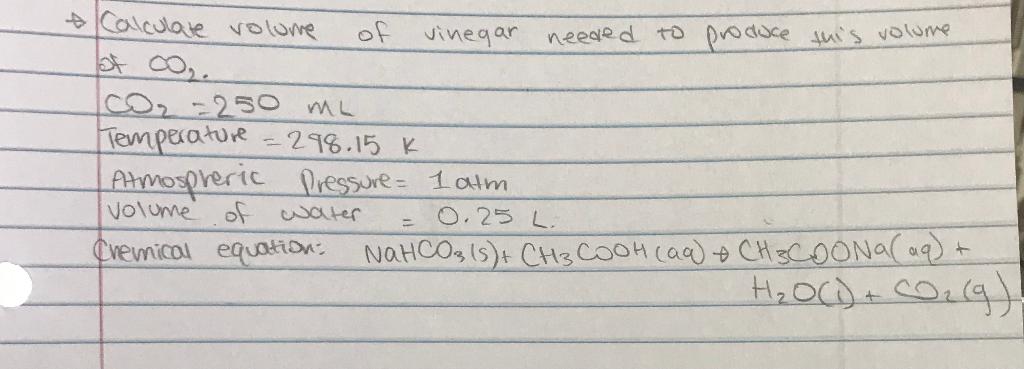 → Calculate volume of vinegar needed to produce this volume
of CO₂.
CO₂ = 250 mL
Temperature = 298.15 K
Atmospheric Pressure = 1 atm
Volume of water = 0.25 L.
Chemical equation: NaHCO₃(s) + CH₃COOH(aq) → CH₃COONa(aq) +
H₂O(l) + CO₂(g)